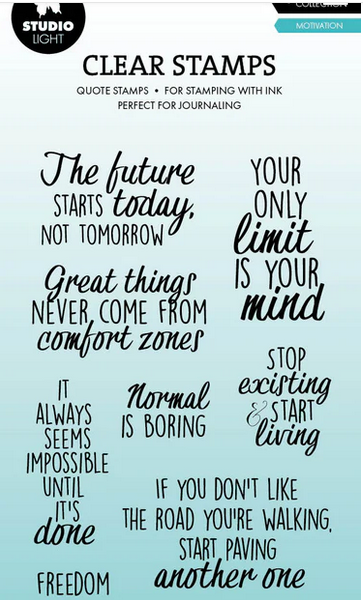 STUDIO
LIGHT
COLLECTION
MOTIVATION
CLEAR STAMPS
QUOTE STAMPS • FOR STAMPING WITH INK
PERFECT FOR JOURNALING
The future
STARTS today,
NOT TOMORROW
YOUR
ONLY
limit
IS YOUR
mind
Great things
NEVER COME FROM
comfort zones
STOP
existing
& START
living
Normal
IS BORING
IT
ALWAYS
SEEMS
IMPOSSIBLE
UNTIL
IT'S
done
IF YOU DON'T LIKE
THE ROAD YOU'RE WALKING,
START PAVING
another one
FREEDOM